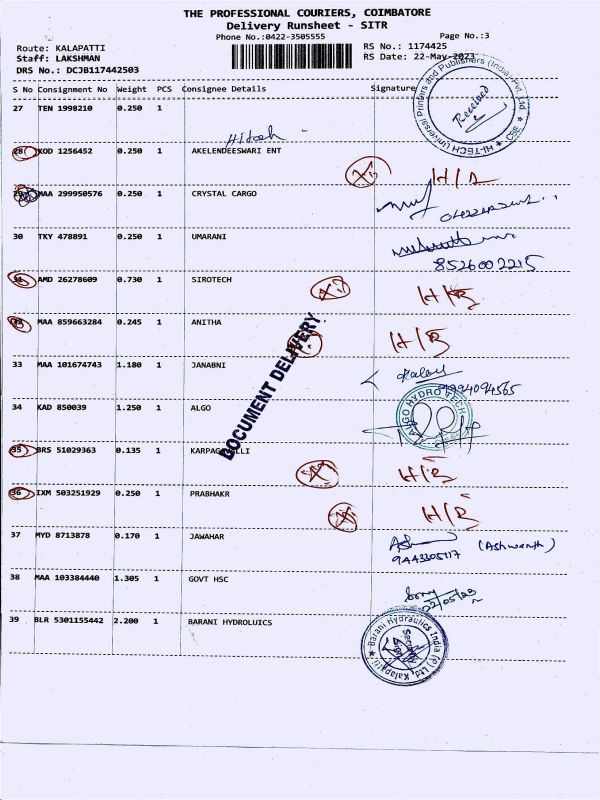 THE PROFESSIONAL COURIERS, COIMBATORE
Delivery Runsheet - SITR
Phone No.:0422-3505555
Page No.:3
Route: KALAPATTI
RS No.: 1174425
Staff: LAKSHMAN
RS Date: 22-May-2023
DRS No.: DCJB117442503
S No Consignment No Weight PCS Consignee Details Signature
27 TEN 1998210 0.250 1
Received
HI-TECH Universal Printers and Publishers (India) Pvt. Ltd. CBE
28 KOD 1256452 0.250 1 AKELENDEESWARI ENT
H/R
MAA 299950576 0.250 1 CRYSTAL CARGO
30 TKY 478891 0.250 1 UMARANI
8526002215
31 AMD 26278609 0.730 1 SIROTECH
H/R
32 MAA 859663284 0.245 1 ANITHA
H/R
DOCUMENT DELIVERY.
33 MAA 101674743 1.180 1 JANABNI
9994094565
34 KAD 850039 1.250 1 ALGO
ALGO HYDRO TECH
35 BRS 51029363 0.135 1
H/R
36 IXM 503251929 0.250 1 PRABHAKR
H/R
37 MYD 8713878 0.170 1 JAWAHAR
(Ashwanth)
38 MAA 103384440 1.305 1 GOVT HSC
22/05/23
39 BLR 5301155442 2.200 1 BARANI HYDROLUICS
Barani Hydraulics India (P) Ltd. Kalapatti
Security